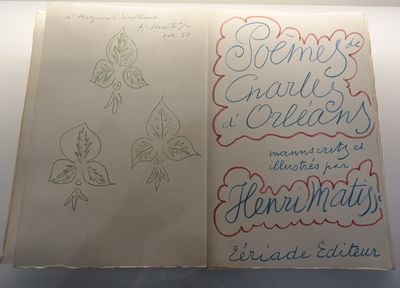 à Marguerite
H. Matisse
Poèmes de
Charles
d'Orléans
manuscrits et
illustrés par
Henri Matisse
Tériade Editeur